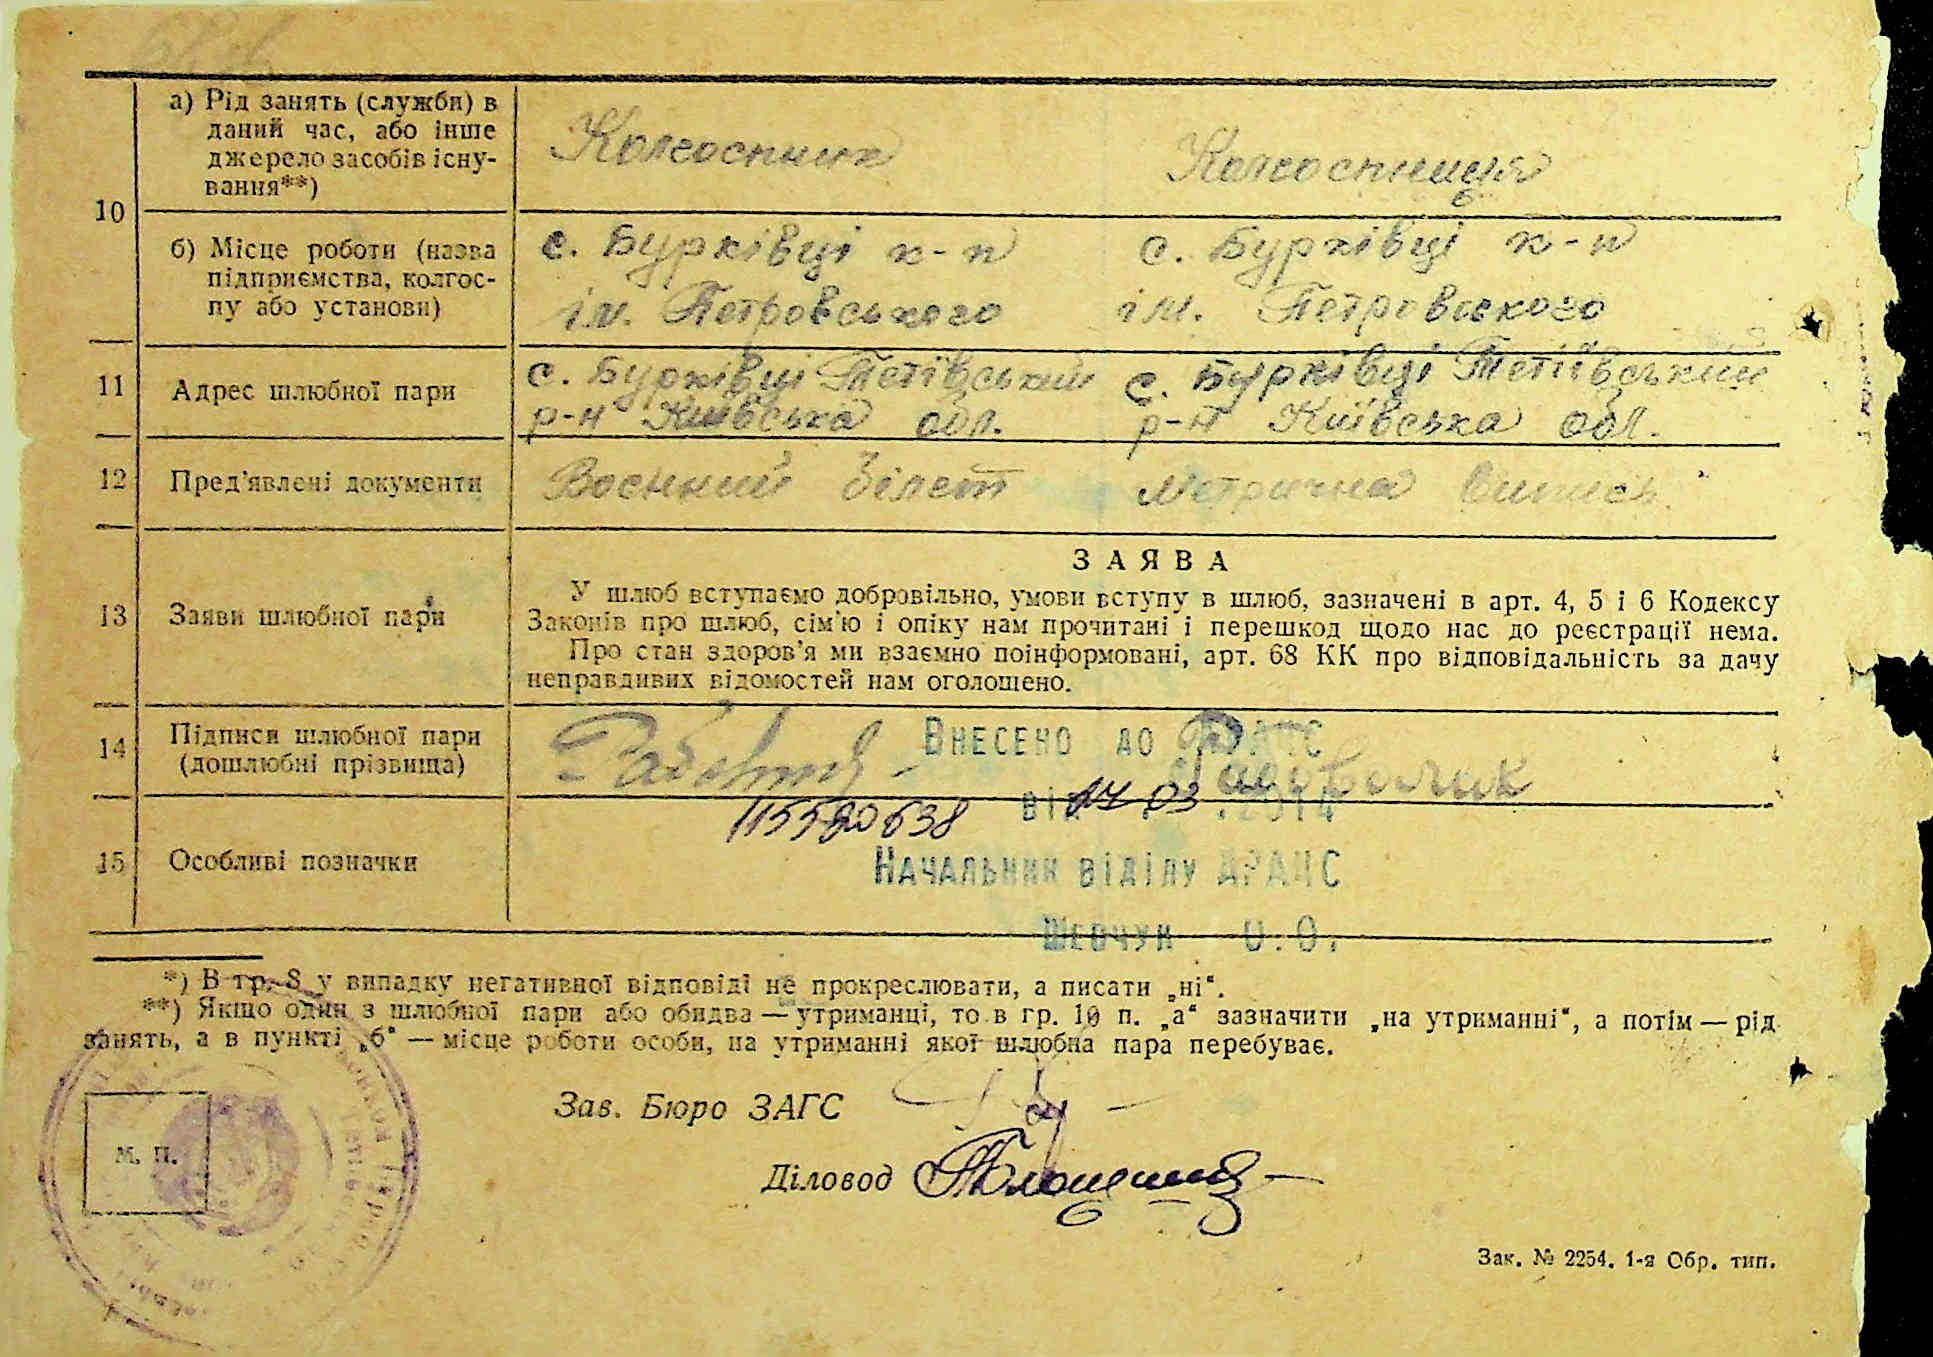 10
а) Рід занять (служби) в
даний час, або інше
джерело засобів існу-
вання**)
Колгоспник
Колгоспниця
б) Місце роботи (назва
підприємства, колгос-
пу або установи)
с. Бурківці к-п
ім. Петровського
с. Бурківці к-п
ім. Петровського
11
Адрес шлюбної пари
с. Бурківці Тетіївський
р-н Київська обл.
с. Бурківці Тетіївський
р-н Київська обл.
12
Пред'явлені документи
Воєнний білет
Метрична випись
13
Заяви шлюбної пари
ЗАЯВА
У шлюб вступаємо добровільно, умови вступу в шлюб, зазначені в арт. 4, 5 і 6 Кодексу
Законів про шлюб, сім'ю і опіку нам прочитані і перешкод щодо нас до реєстрації нема.
Про стан здоров'я ми взаємно поінформовані, арт. 68 КК про відповідальність за дачу
неправдивих відомостей нам оголошено.
14
Підписи шлюбної пари
(дошлюбні прізвища)
Внесено до ДРАЦС
від 17 03 .2014
115520638
15
Особливі позначки
Начальник віділу ДРАЦС
Шевчук О.О.
*) В гр. 8 у випадку негативної відповіді не прокреслювати, а писати „ні“.
**) Якщо один з шлюбної пари або обидва — утриманці, то в гр. 10 п. „а“ зазначити „на утриманні“, а потім — рід
занять, а в пункті „б“ — місце роботи особи, на утриманні якої шлюбна пара перебуває.
Зав. Бюро ЗАГС
М. П.
Діловод
Зак. № 2254. 1-я Обр. тип.